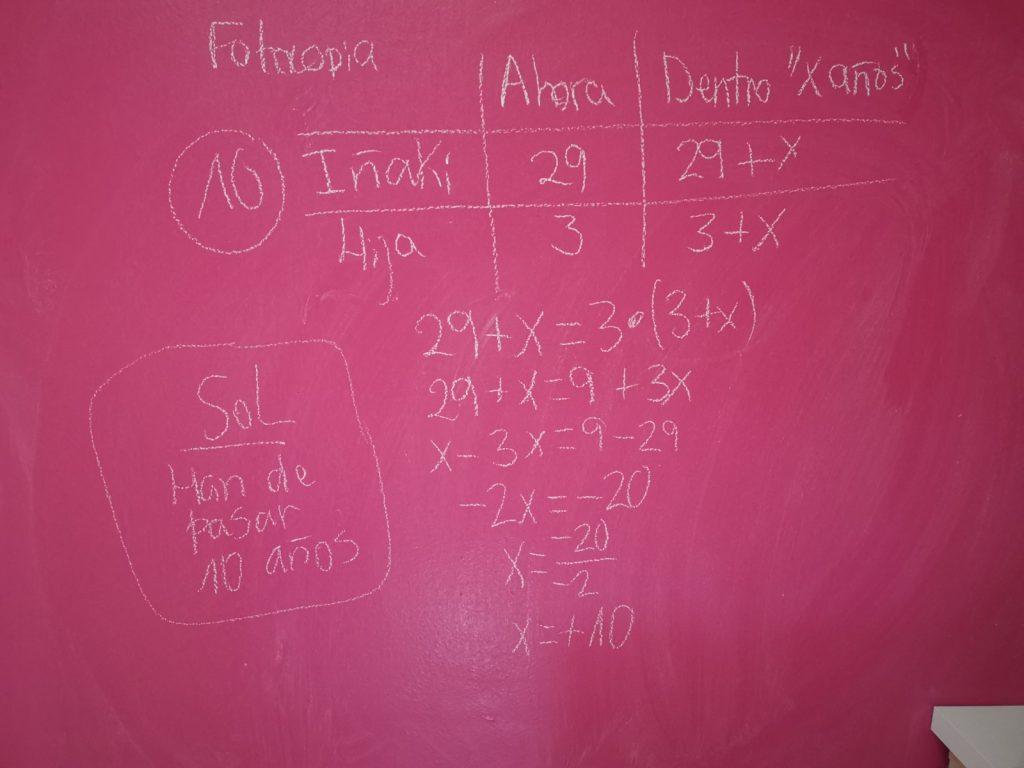 Fotocopia
Ahora Dentro "x años"
10 Iñaki 29 29+x
Hija 3 3+x
29+x=3•(3+x)
29+x=9+3x
x-3x=9-29
-2x=-20
x=-20/-2
x=+10
Sol
Han de
pasar
10 años